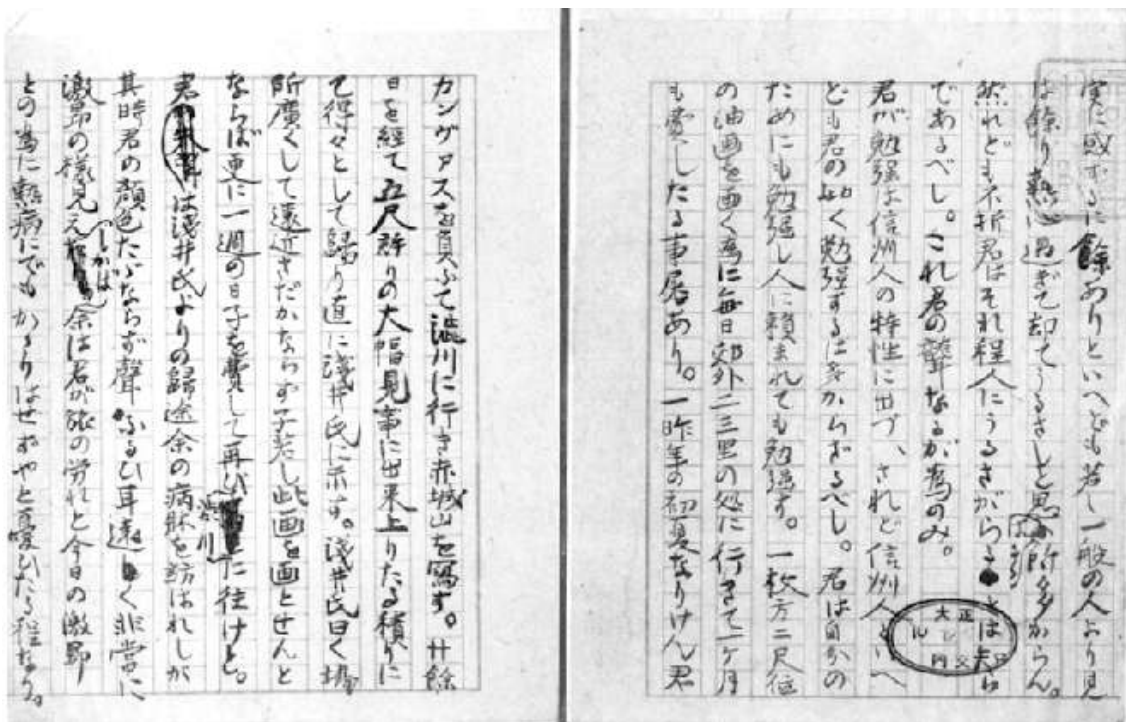 実に感ずるに餘ありといへども若し一般の人より見
は餘り熱心過ぎて却てうるさしと思ふ所多からん。
然れども不折君はそれ程人にうるさがらるゝとは夫ら
であるべし。これ君の聾なるが為のみ。
君が勉強は信州人の特性に出づ、されど信州人といへ
ども君の如く勉強するは多からざるべし。君は自かの
ためにも勉強し人に頼まれても勉強す。一枚方二尺位
の油画を画く為に毎日郊外二三里の処に行きて一ヶ月
も費したる事屡あり。一昨年の初夏なりけん君
カンヴァスを負ふて澁川に行き赤城山を寫す。廿餘
日を經て五尺許りの大幅見事に出來上りたる積りに
て得々として歸り直に浅井氏に示す。浅井氏曰く場
所廣くして遠近さだかならず子若し此画を画とせんと
ならば更に一週の日子を費して再び澁川に往けと。
君は浅井氏よりの歸途余の病牀を訪はれしが
其時君の顏色たゞならず聲ふるひ耳遠く非常に
激昂の樣見えしかば余は君が旅の労れと今日の激昂
との為に熱病にでもかゝりはせずやと憂ひたる程なり。